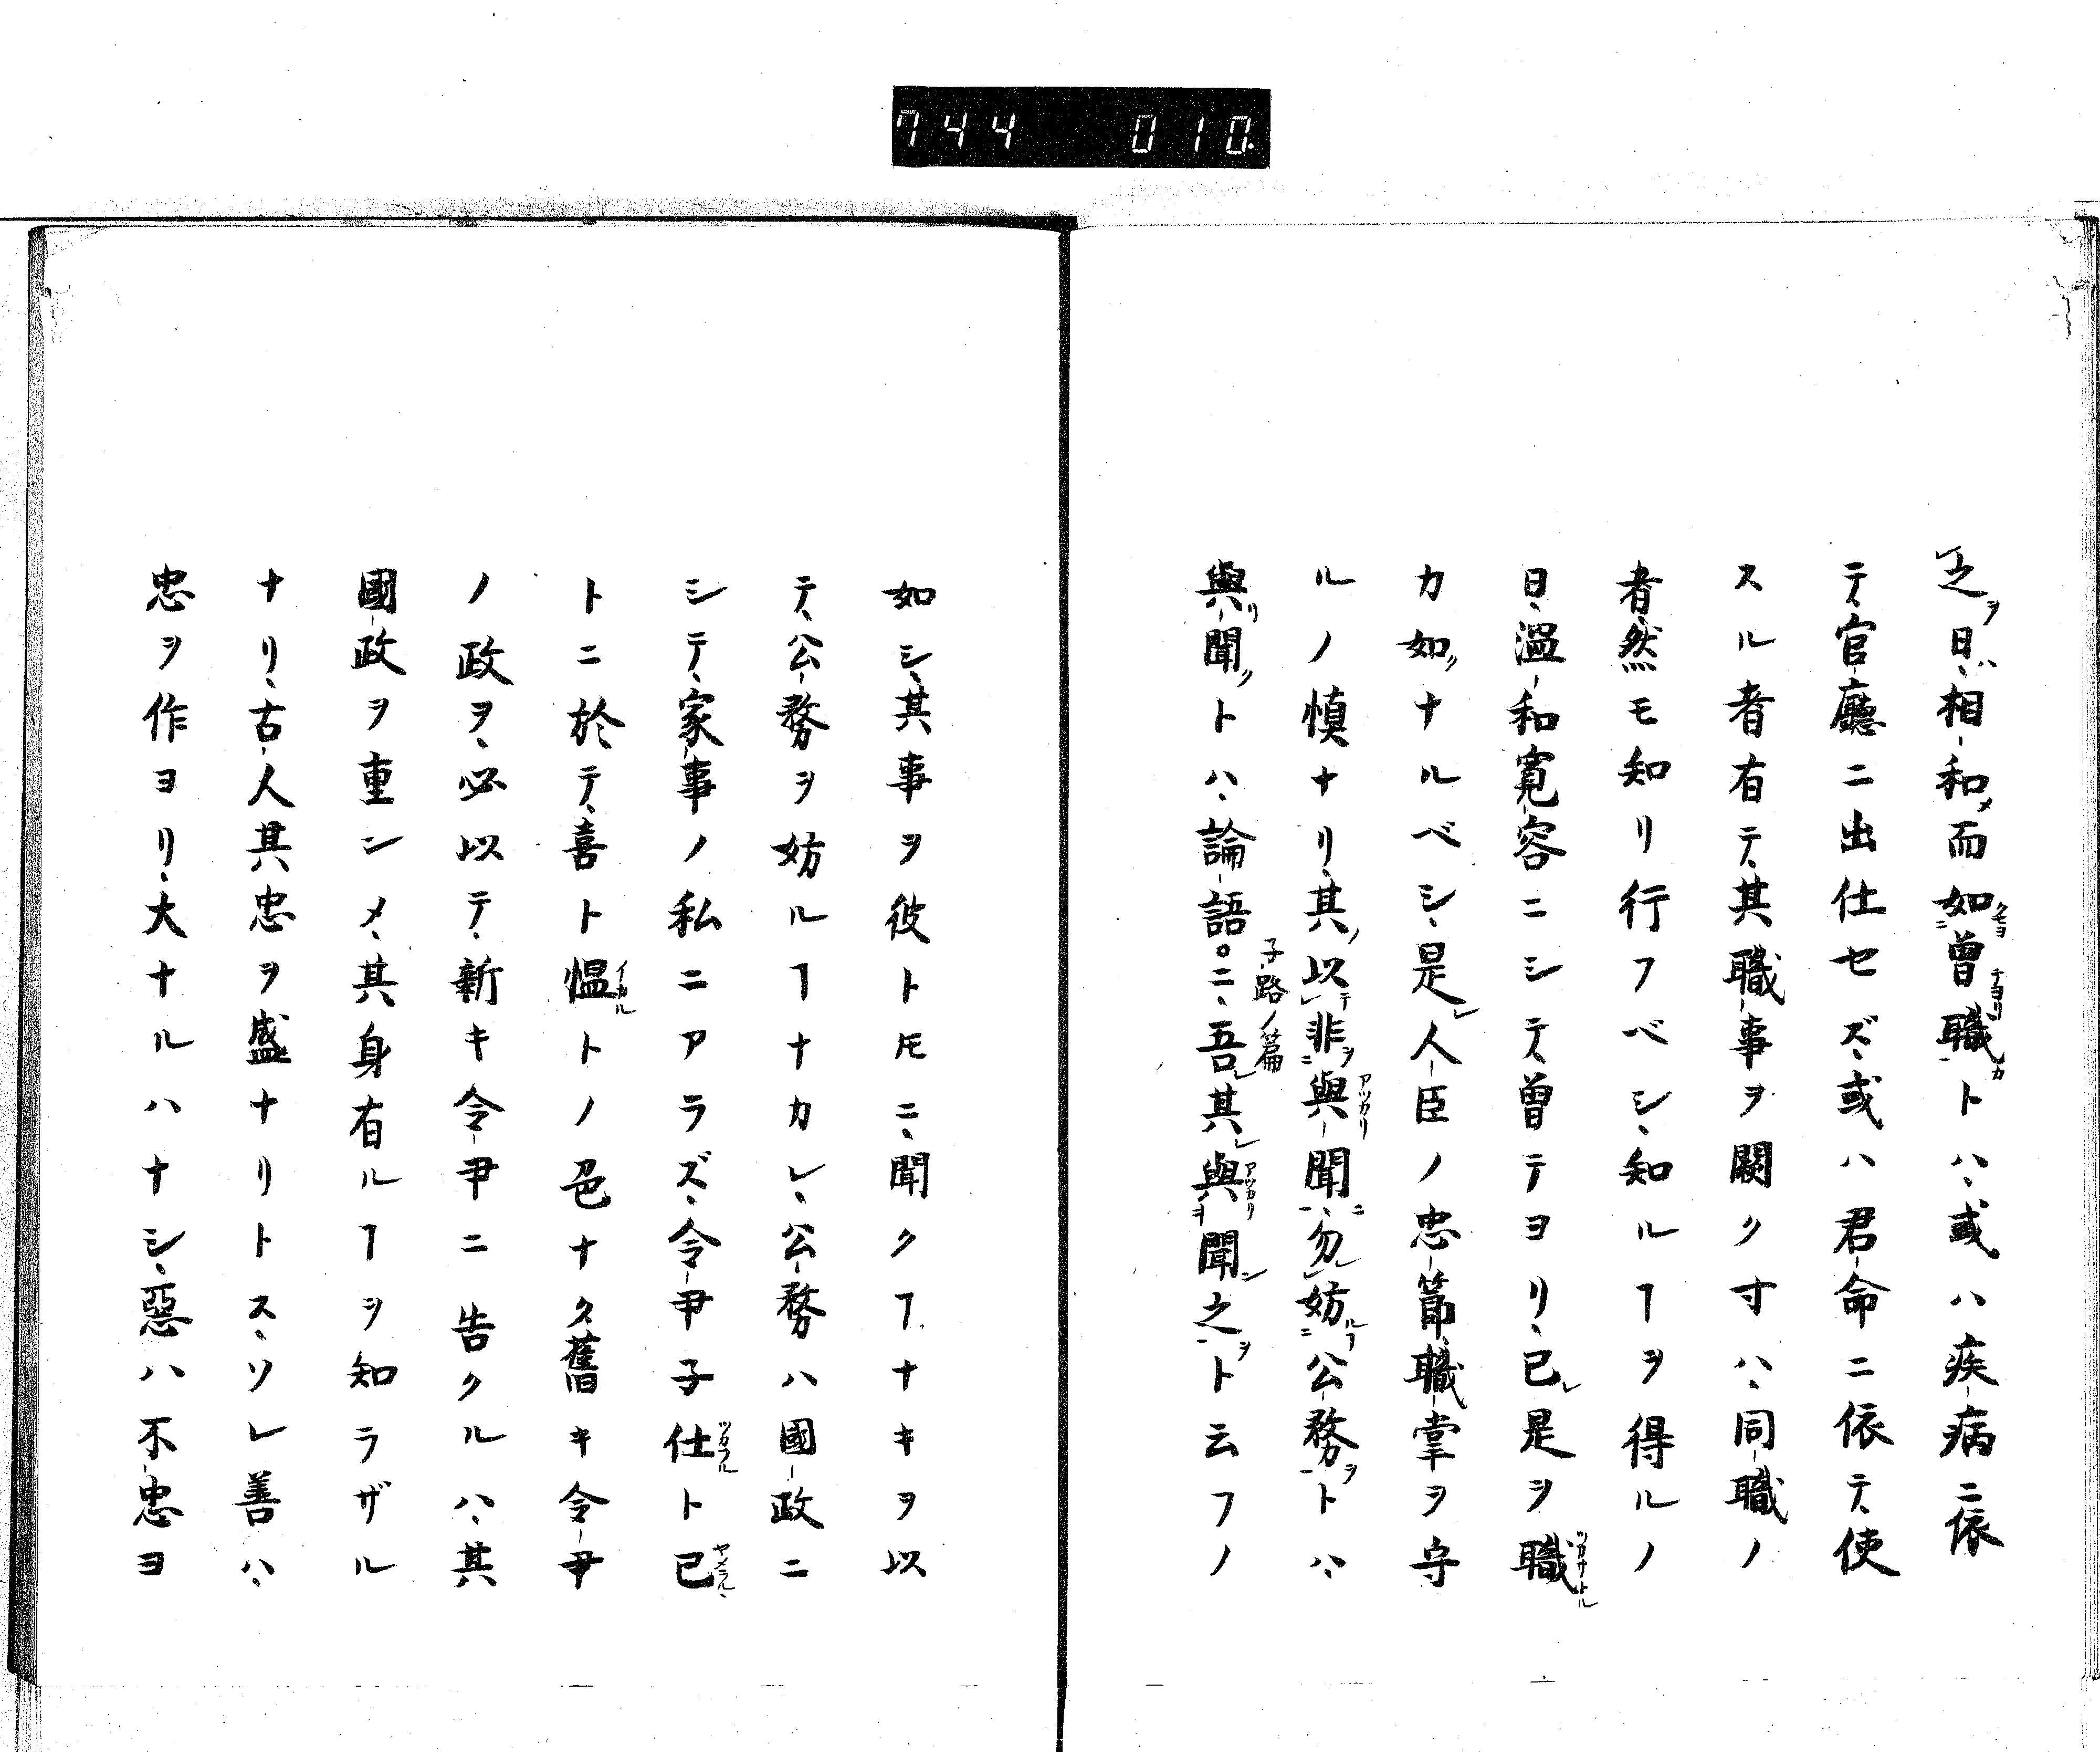 744 010
乏日、相和而如曾職トハ、或ハ疾病ニ依
テ、官廳ニ出仕セズ、或ハ君命ニ依テ、使
スル者有テ、其職事ヲ闕ク寸ハ、同職ノ
者、然モ知リ行フベシ、知ルヿヲ得ルノ
日、溫和寛容ニシテ、曽テヨリ、已レ是ヲ職ツカサトル
カ如クナルベシ、是レ人臣ノ忠節、職掌ヲ守
ルノ慎ナリ、其ノ以テ非ヲ與アツカリ聞ニ、勿レ妨ルヿ公務ヲトハ、
與リ聞クトハ、論語。子路ノ篇ニ、吾レ其レ與アツカリ聞シ之ヲト云フノ
如シ、其事ヲ彼トモニ、聞クヿナキヲ以
テ、公務ヲ妨ルヿナカレ、公務ハ國政ニ
シテ、家事ノ私ニアラズ、令尹子仕ツカフルト已ヤメラル、
トニ於テ、喜ト慍イカルトノ色ナク、舊キ令尹
ノ政ヲ、必以テ、新キ令尹ニ告クルハ、其
國政ヲ重ンメ、其身有ルヿヲ知ラザル
ナリ、古人其忠ヲ盛ナリトス、ソレ善ハ、
忠ヲ作ヨリ、大ナルハナシ、惡ハ不忠ヨ